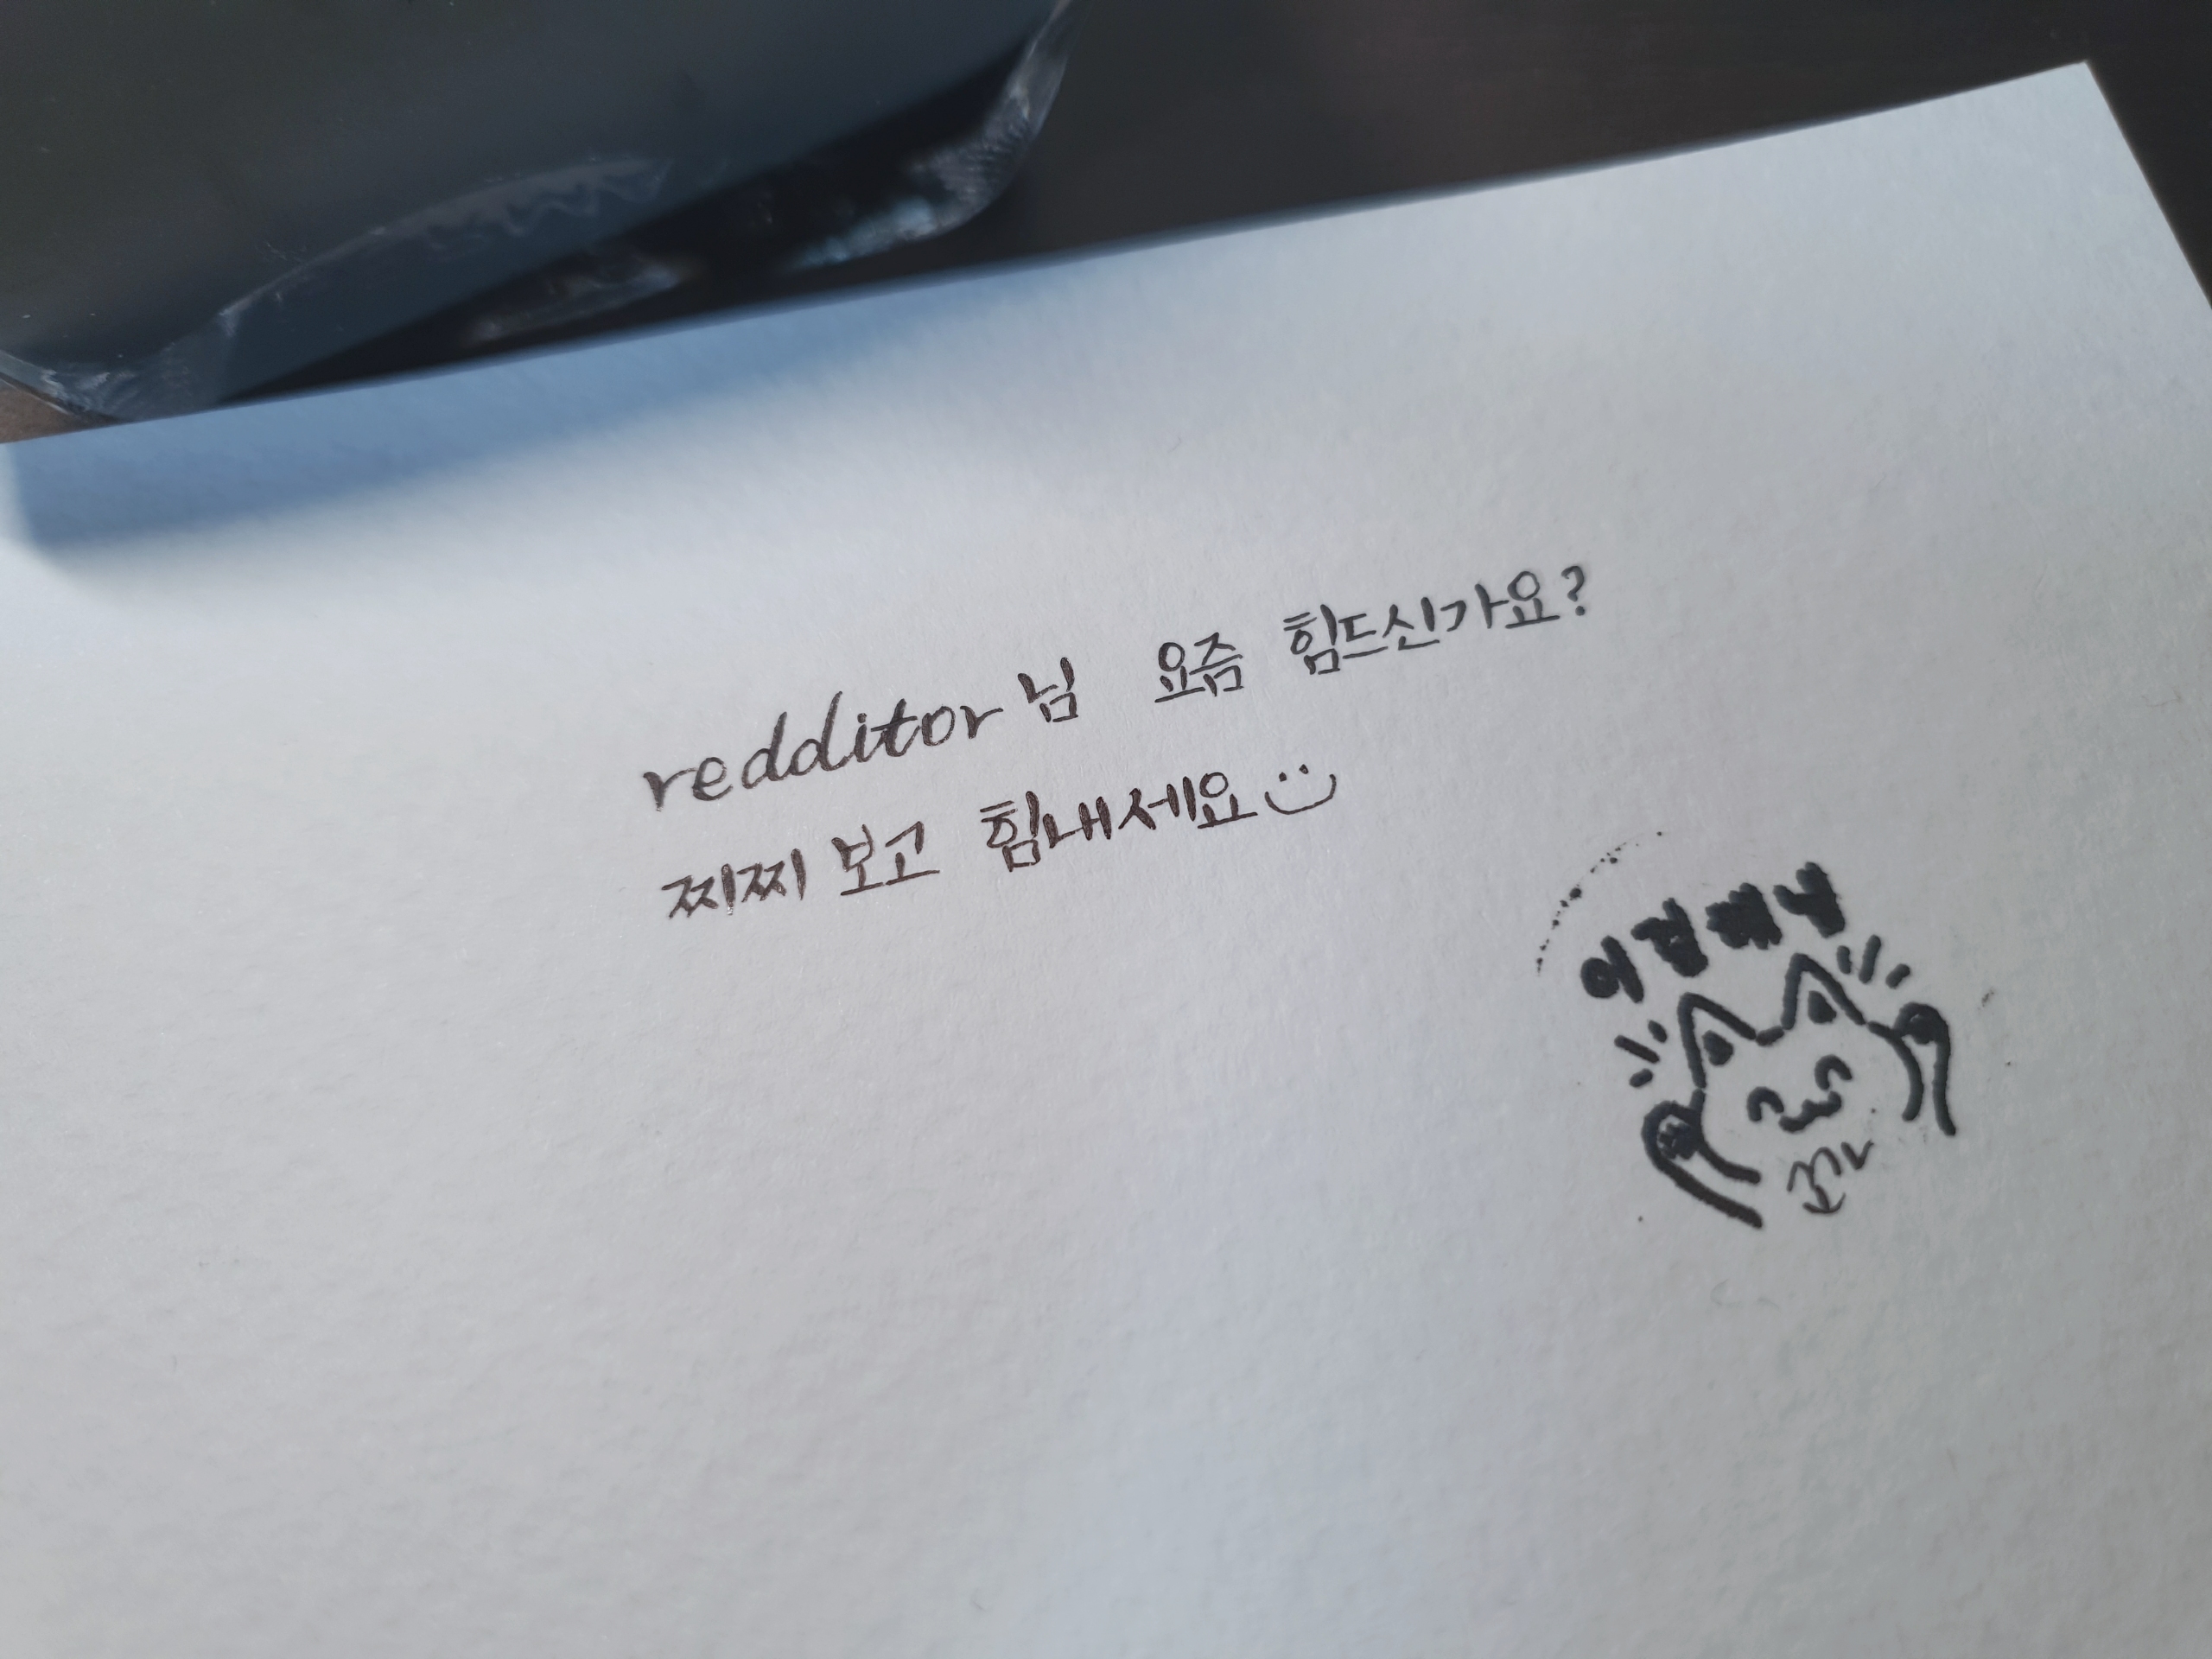 redditor님 요즘 힘드신가요?
찌찌 보고 힘내세요
이걸해냄